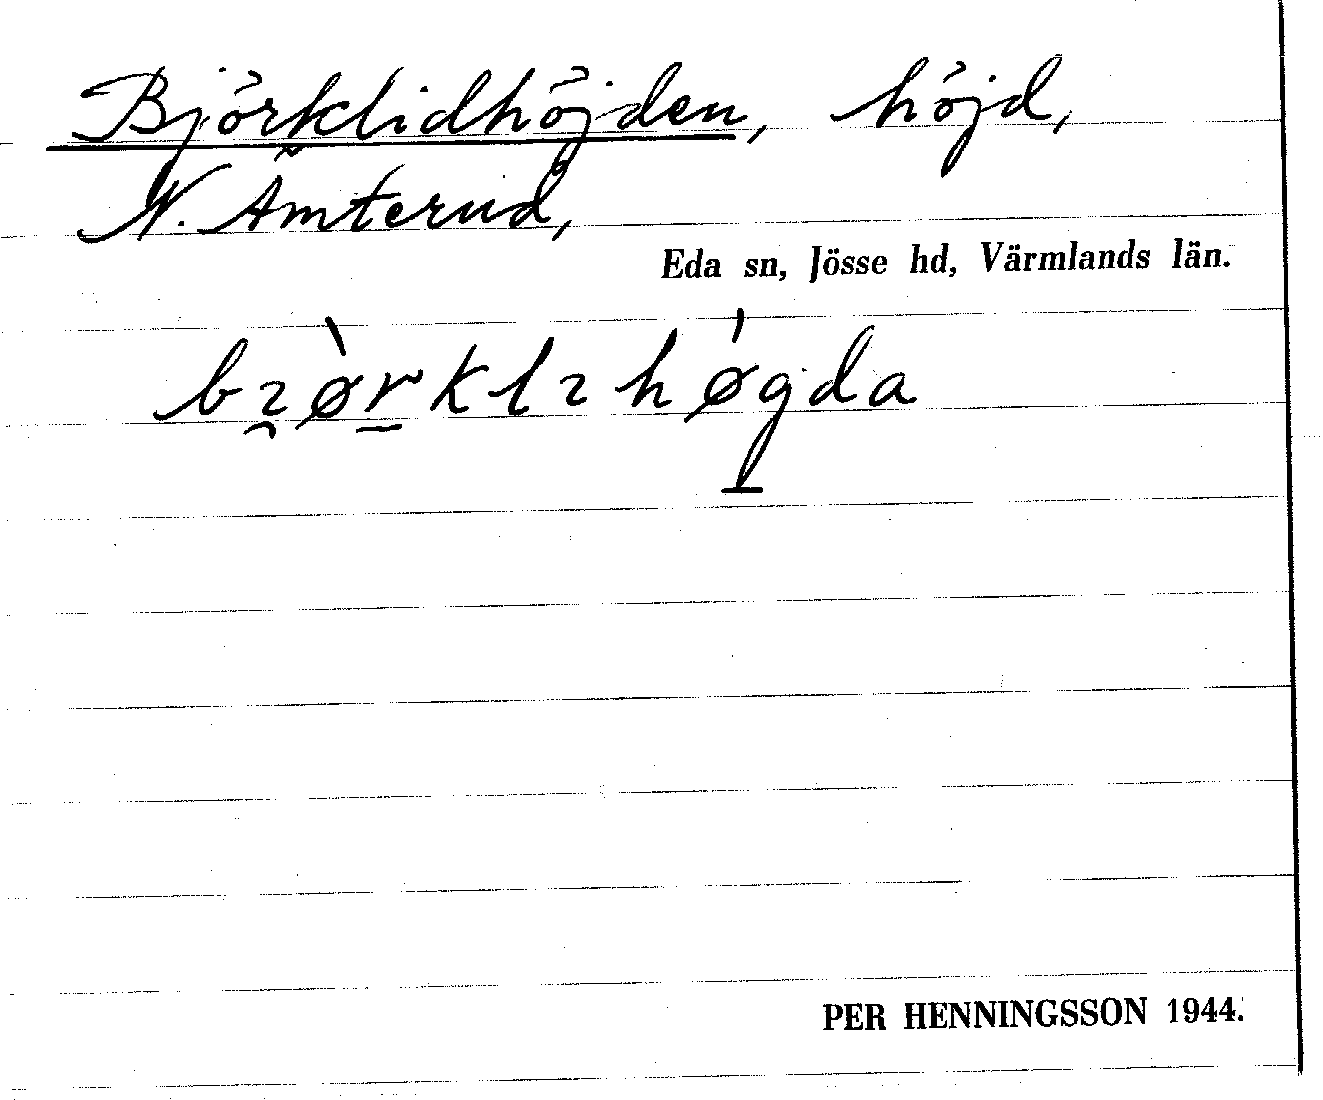 Björklidhöjden, höjd,
N. Ämterud,
Eda sn, Jösse hd, Värmlands län.
bɿ̯ø̀r̲klɿhǿg̲da
PER HENNINGSSON 1944.